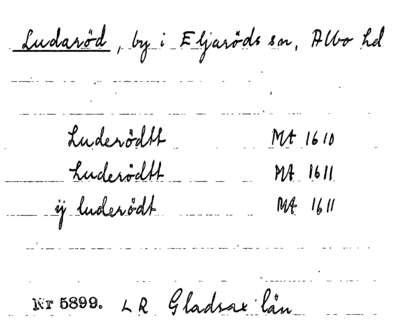 Ludaröd, by i Eljaröds sn, Albo hd
Luderödtt MA 1610
Luderödtt MA 1611
ij luderödt MA 1611
Nr 5899. LR Gladsax län